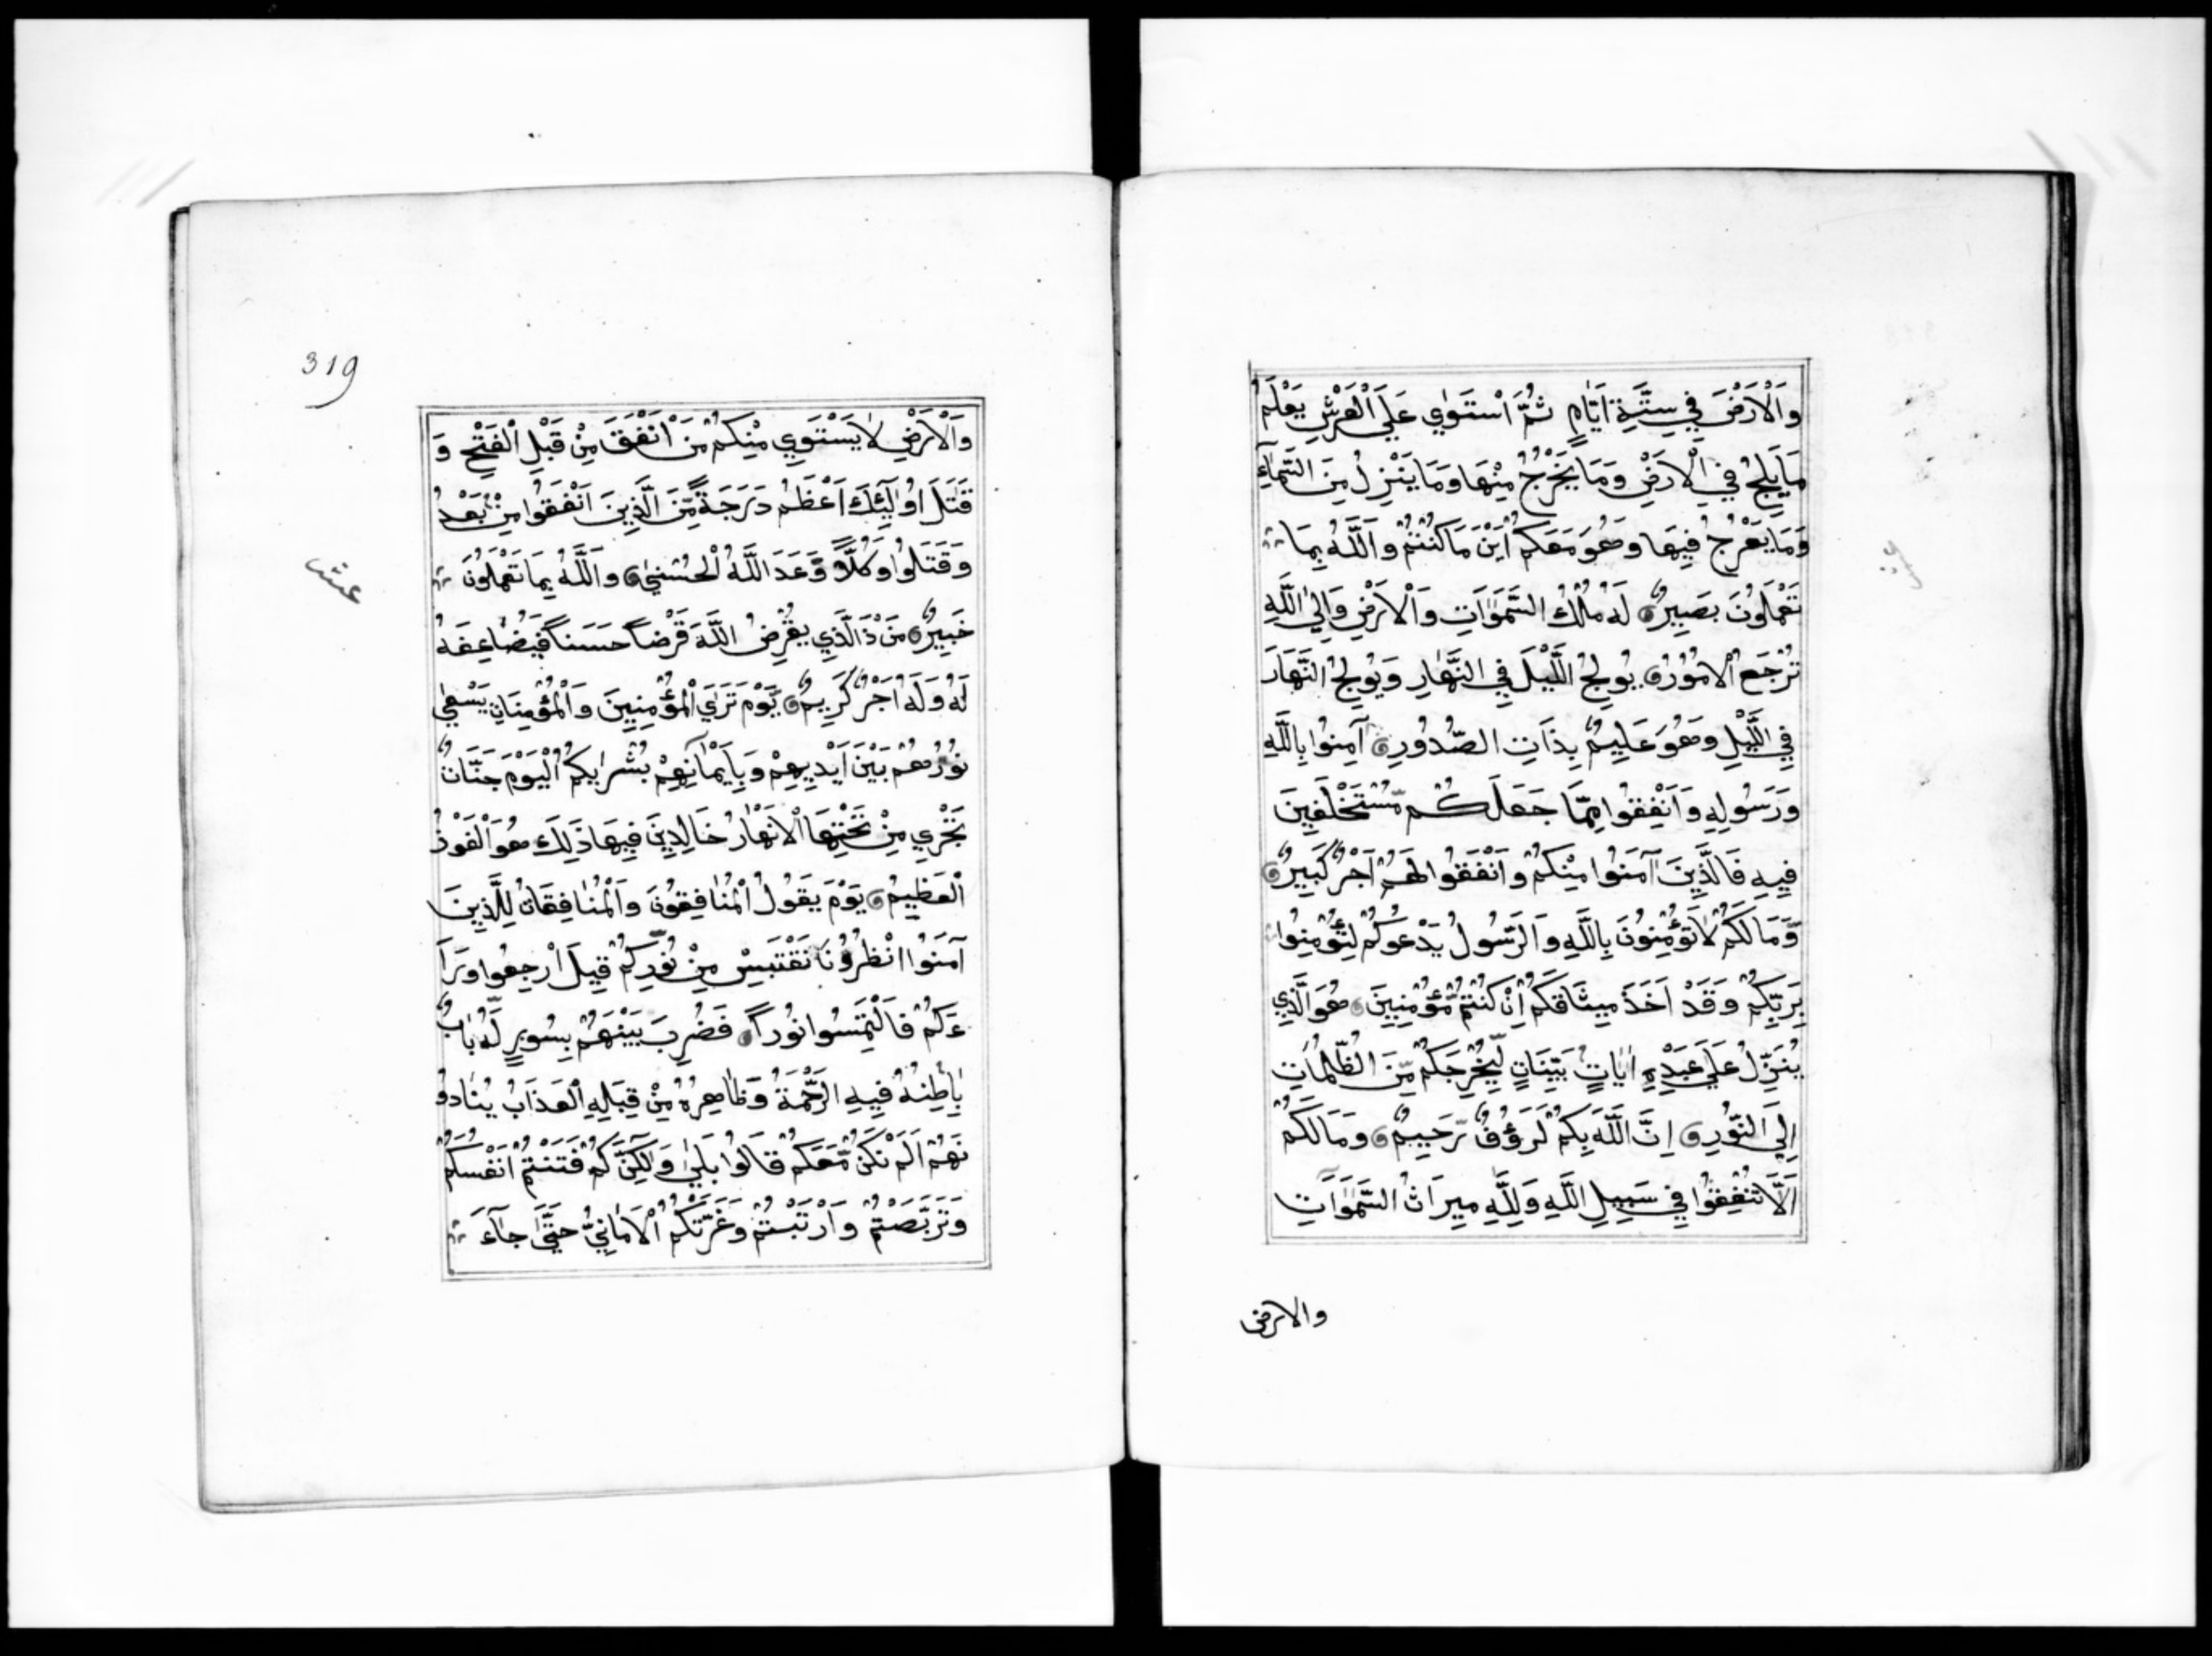 وَالْاَرْضَ فِي سِتَّةِ اَيَّامٍ ثُمَّ اسْتَوٰي عَلَي الْعَرْشِ يَعْلَمُ
مَا يَلِجُ فِي الْاَرْضِ وَمَا يَخْرُجُ مِنْهَا وَمَا يَنْزِلُ مِنَ السَّمَآءِ
وَمَا يَعْرُجُ فِيهَا وَهُوَ مَعَكُمْ اَيْنَ مَا كُنْتُمْ وَاللَّهُ بِمَا
تَعْمَلُونَ بَصِيرٌ لَهُ مُلْكُ السَّمَوَاتِ وَالْاَرْضِ وَاِلَي اللَّهِ
تُرْجَعُ الْاُمُورُ يُولِجُ اللَّيْلَ فِي النَّهَارِ وَيُولِجُ النَّهَارَ
فِي اللَّيْلِ وَهُوَ عَلِيمٌ بِذَاتِ الصُّدُورِ آمِنُوا بِاللَّهِ
وَرَسُولِهِ وَاَنْفِقُوا مِمَّا جَعَلَكُمْ مُّسْتَخْلَفِينَ
فِيهِ فَالَّذِينَ آمَنُوا مِنْكُمْ وَاَنْفَقُوا لَهُمْ اَجْرٌ كَبِيرٌ
وَمَا لَكُمْ لَا تُؤْمِنُونَ بِاللَّهِ وَالرَّسُولُ يَدْعُوكُمْ لِتُؤْمِنُوا
بِرَبِّكُمْ وَقَدْ اَخَذَ مِيثَاقَكُمْ اِنْ كُنْتُمْ مُّؤْمِنِينَ هُوَ الَّذِي
يُنَزِّلُ عَلَي عَبْدِهِ اٰيَاتٍ بَيِّنَاتٍ لِّيُخْرِجَكُمْ مِّنَ الظُّلُمَاتِ
اِلَي النُّورِ اِنَّ اللَّهَ بِكُمْ لَرَؤُفٌ رَّحِيمٌ وَمَا لَكُمْ
اَلَّا تُنْفِقُوا فِي سَبِيلِ اللَّهِ وَلِلَّهِ مِيرَاثُ السَّمَوَاتِ
والارض
319
وَالْاَرْضِ لَا يَسْتَوِي مِنْكُمْ مَّنْ اَنْفَقَ مِنْ قَبْلِ الْفَتْحِ وَ
قَتَلَ اُولٰٓئِكَ اَعْظَمُ دَرَجَةً مِّنَ الَّذِينَ اَنْفَقُوا مِنْ بَعْدُ
وَقَتَلُوا وَكُلًّا وَّعَدَ اللَّهُ الْحُسْنٰي وَاللَّهُ بِمَا تَعْمَلُونَ
خَبِيرٌ مَنْ ذَا الَّذِي يُقْرِضُ اللَّهَ قَرْضاً حَسَناً فَيُضَاعِفَهُ
لَهُ وَلَهُ اَجْرٌ كَرِيمٌ يَّوْمَ تَرَي الْمُؤْمِنِينَ وَالْمُؤْمِنَاتِ يَسْعٰي
نُورُهُمْ بَيْنَ اَيْدِيهِمْ وَبِاَيْمَانِهِمْ بُشْرٰيكُمُ الْيَوْمَ جَنَّاتٌ
تَجْرِي مِنْ تَحْتِهَا الْاَنْهَارُ خَالِدِينَ فِيهَا ذَلِكَ هُوَ الْفَوْزُ
الْعَظِيمُ يَوْمَ يَقُولُ الْمُنَافِقُونَ وَالْمُنَافِقَاتُ لِلَّذِينَ
آمَنُوا انْظُرُونَا نَقْتَبِسْ مِنْ نُّورِكُمْ قِيلَ ارْجِعُوا وَرَآ
ءَكُمْ فَالْتَمِسُوا نُوراً فَضُرِبَ بَيْنَهُمْ بِسُورٍ لَّهُ بَابٌ
بَاطِنُهُ فِيهِ الرَّحْمَةُ وَظَاهِرُهُ مِنْ قِبَلِهِ الْعَذَابُ يُنَادُو
نَهُمْ اَلَمْ نَكُنْ مَّعَكُمْ قَالُوا بَلٰي وَلٰكِنَّكُمْ فَتَنْتُمْ اَنْفُسَكُمْ
وَتَرَبَّصْتُمْ وَارْتَبْتُمْ وَغَرَّتْكُمُ الْاَمَانِيُّ حَتَّي جَآءَ
عشر